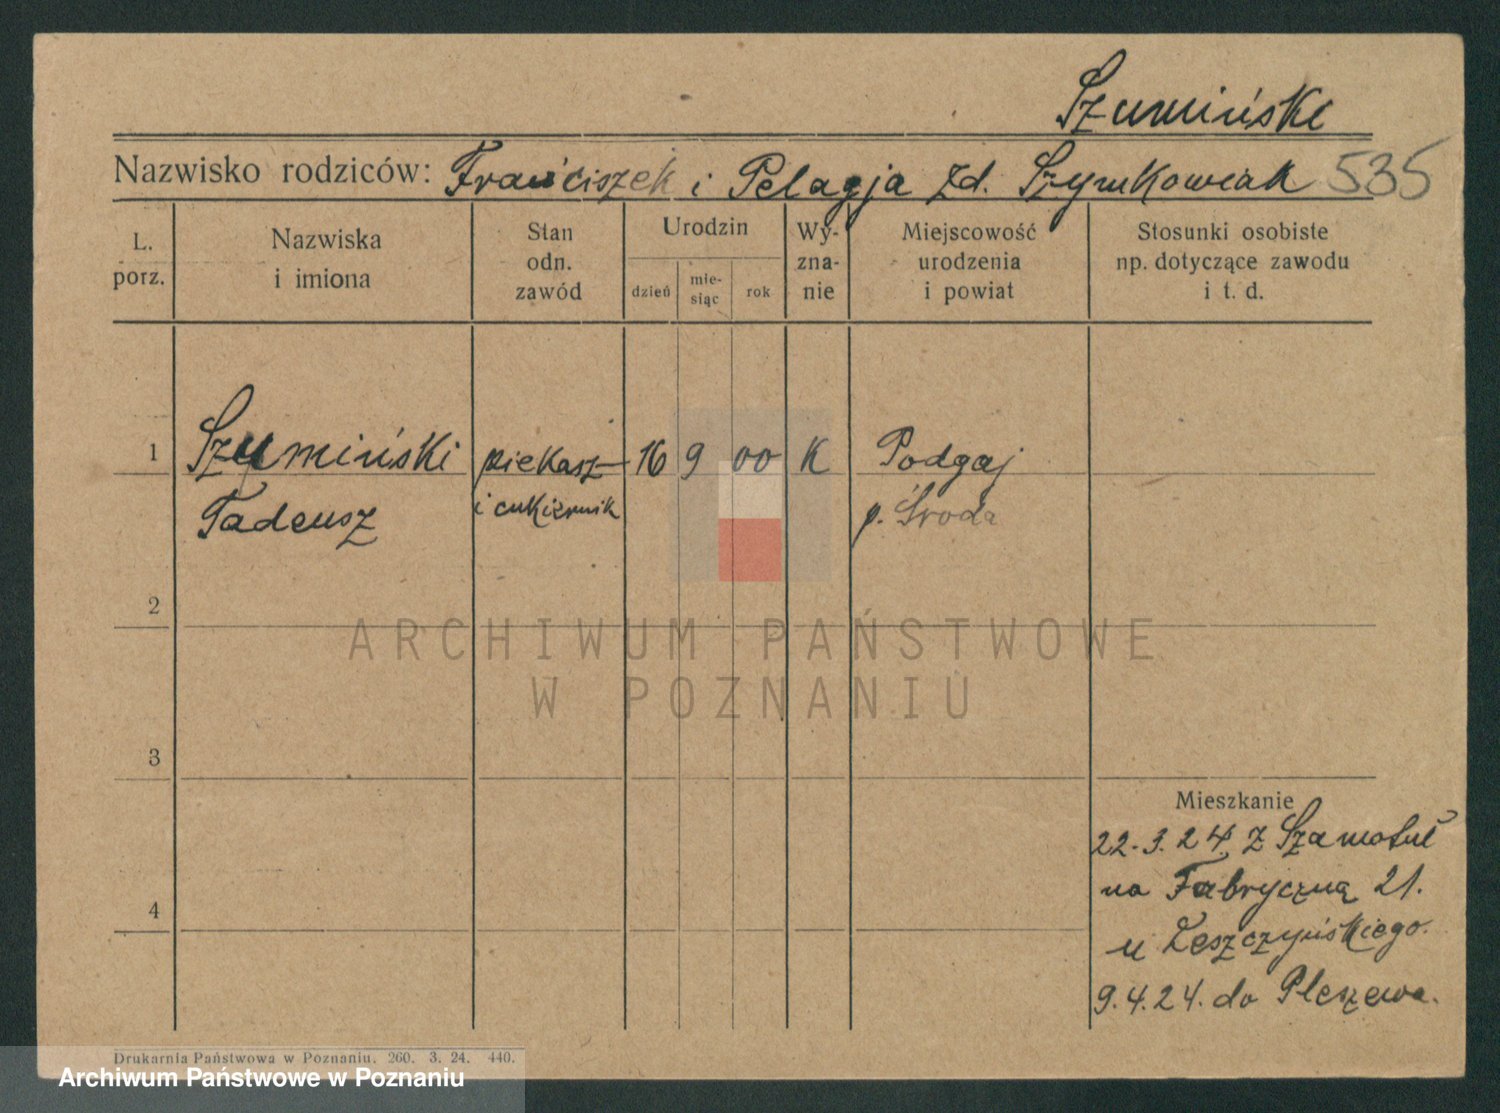 Szumiński
Nazwisko rodziców: Franciszek i Pelagja zd. Szymkowiak 535
L. porz.
Nazwiska i imiona
Stan odn. zawód
Urodzin
dzień
mie-
siąc
rok
Wy-
zna-
nie
Miejscowość
urodzenia
i powiat
Stosunki osobiste
np. dotyczące zawodu
i t. d.
1 Szumiński piekasz 16 9 00 K Podgaj
Tadeusz i cukiernik p. Środa
2
ARCHIWUM PAŃSTWOWE
W POZNANIU
3
Mieszkanie
22.3.24. z Szamotuł
na Fabryczną 21.
4
u Leszczyńskiego.
9.4.24. do Pleszewa.
Drukarnia Państwowa w Poznaniu. 260. 3. 24. 440.
Archiwum Państwowe w Poznaniu